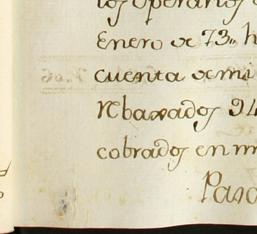 los operarios
Enero de 73„ h
cuenta de mi
rebaxados 94
cobrados en m
Paso